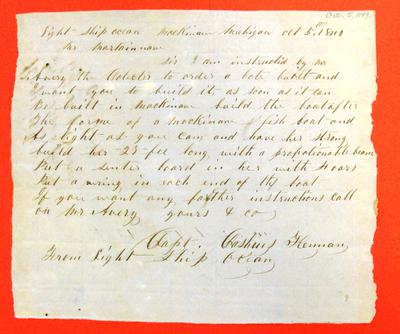 Oct. 5, 1849
Light Ship ocean Mackinaw Michigan oct 5th 1849
Mr Martainnan
Sir I am instructed by Mr
Avery the Colictor to order a bote bieelt and
I want you to build it as soon as it can
Be built in mackinaw build the boat after
The forme of a mackinaw fish boat and
As slight as you can and have her strong
build her 23 fee long with a propationable beam
Put a Senter board in her with 4 oars
Put a wring in each end of the boat
If you want any farther instructions call
on Mr Avery yours & co
Capt. Heeman
From Light Ship Ocean